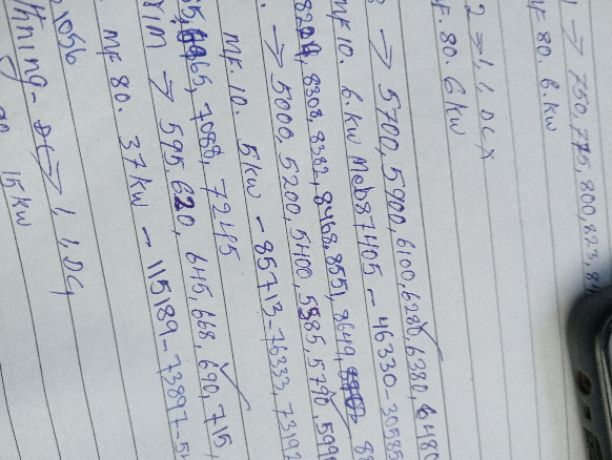 → 750, 775, 800, 823, 84
MF 80. 6. KW
2 → 1, 1, DC,
MF. 80. 6 KW
→ 5700, 5900, 6100, 6280, 6380, 6480
MF 10. 6. KW 87405 - 46330 - 30585
8308, 8382, 8468, 8551, 8649,
→ 5000, 5200, 5400, 5585, 5790, 599
MF. 10. 5 KW - 85713 - 76333, 73197
65, 7088, 7245
→ 595, 620, 645, 668, 690, 715,
MF 80. 37 KW - 115189 - 73897 - 5
1056
tning - → 1, 1, DC,
15 KW